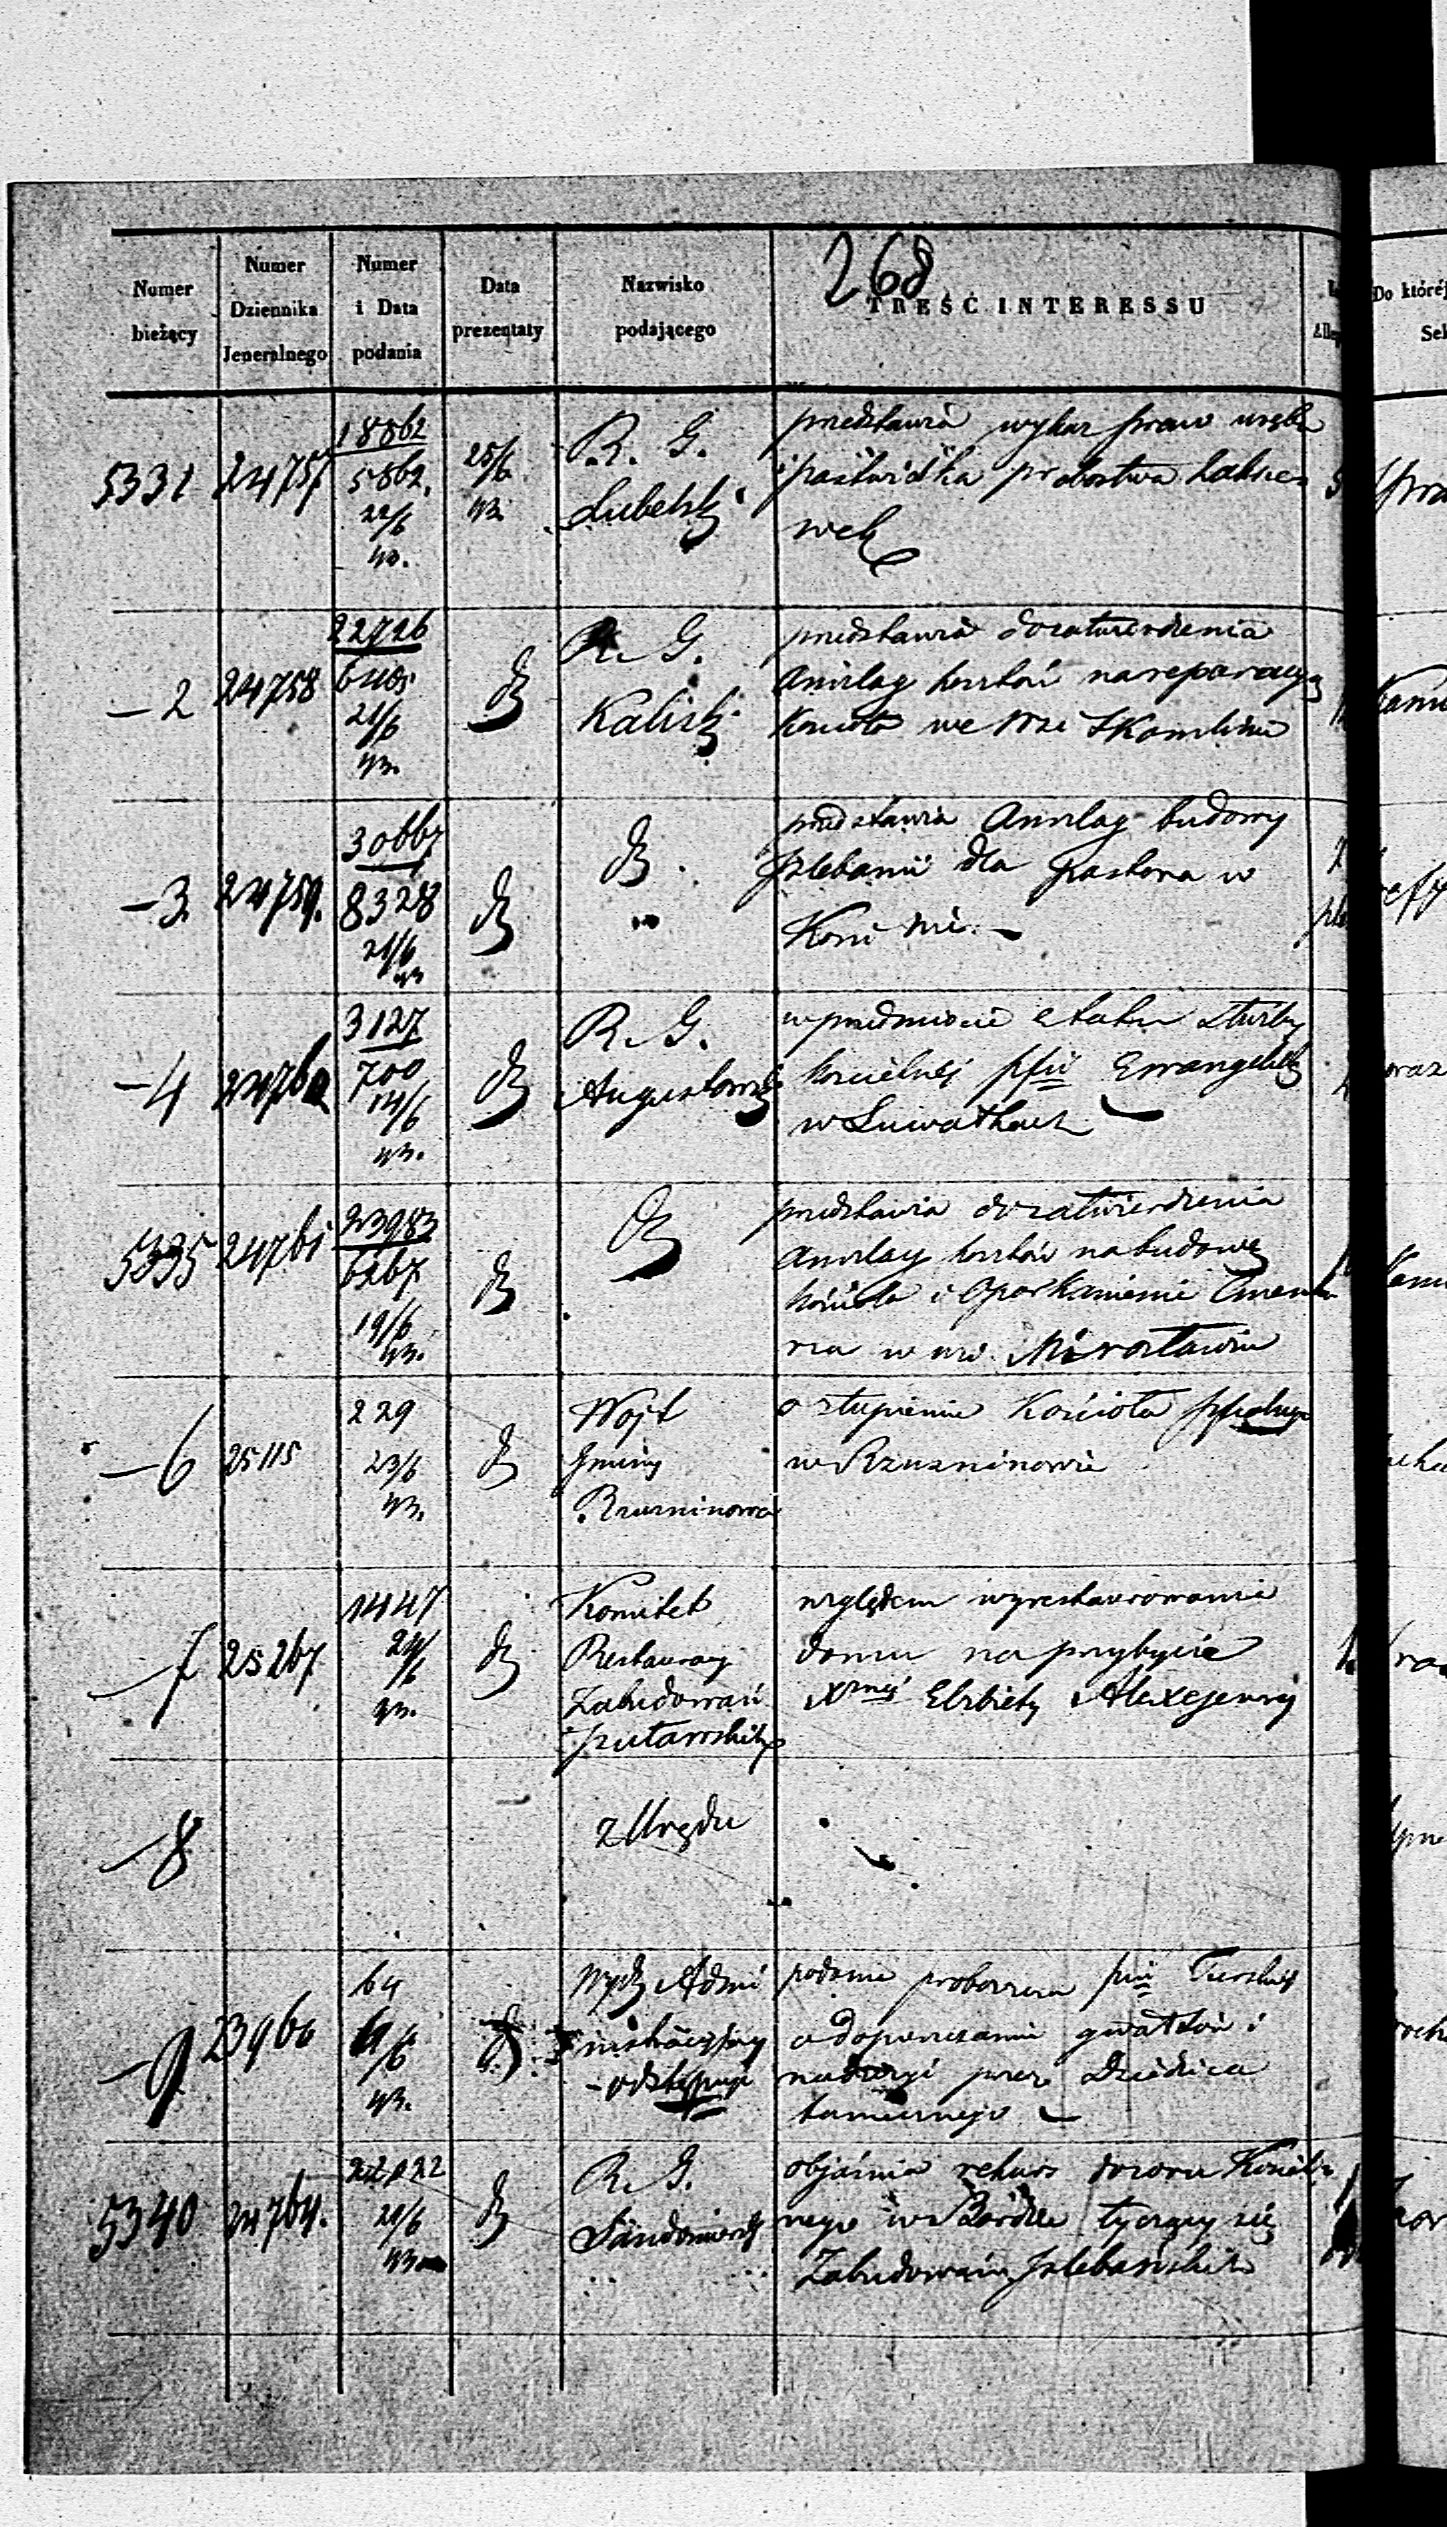 268
Numer bieżący
Numer Dziennika Jeneralnego
Numer i Data podania
Data prezentaty
Nazwisko podającego
TREŚĆ INTERESSU
Do któréj
5331 24757
18862
5862.
22/6
43.
25/6
43.
R. G.
Lubelski
przedstawia wykaz praw wrębu
i pastwiska probostwa
wek
—2 24758
22726
21/6
43.
R. G.
Kaliski
przedstawia do zatwierdzenia
Anszlag kosztów na reparacyą
Kościoła we wsi Skomlinie
—3 24759.
30667
8328
21/6
43
przedstawia Anszlag budowy
Plebanii dla pastora w
Koninie. —
—4 24760
3127
700
14/6
43.
R. G.
Augustowski
w przedmiocie etatu służby
kościelnej pfii Ewangelic
w Suwałkach
5335 24761
23983
6267
19/6
43.
przedstawia do zatwierdzenia
Anszlag kosztów na budowę
kościoła i oparkanienie Cmenta
rza w m. Mirosławiu
—6 25115
229
23/6
43.
Wojt
Gminy
Rzuzninowa
o
Kościoła
w Rzuzninowie
—7 25267
1447
24/6
43.
Komitet
Restauracyi
Zabudowań
puławskich
względem wyrestaurowania
domu na przybycie
Xznej Elżbiety Alexejewnej
—8
z Urzędu
—9 23960
64
6/6
43.
Wydz Admi
nistracyjny
odstępuje
podanie proboszcza pfii Turskiej
o dopuszczaniu gwałtów i
nadużyć przez Dziedzica
tamecznego —
5340 24764.
22122
21/6
43
R. G.
Sandomierski
objaśnia rekurs dozoru Kościel
nego w tyczący się
Zabudowań Plebańskich